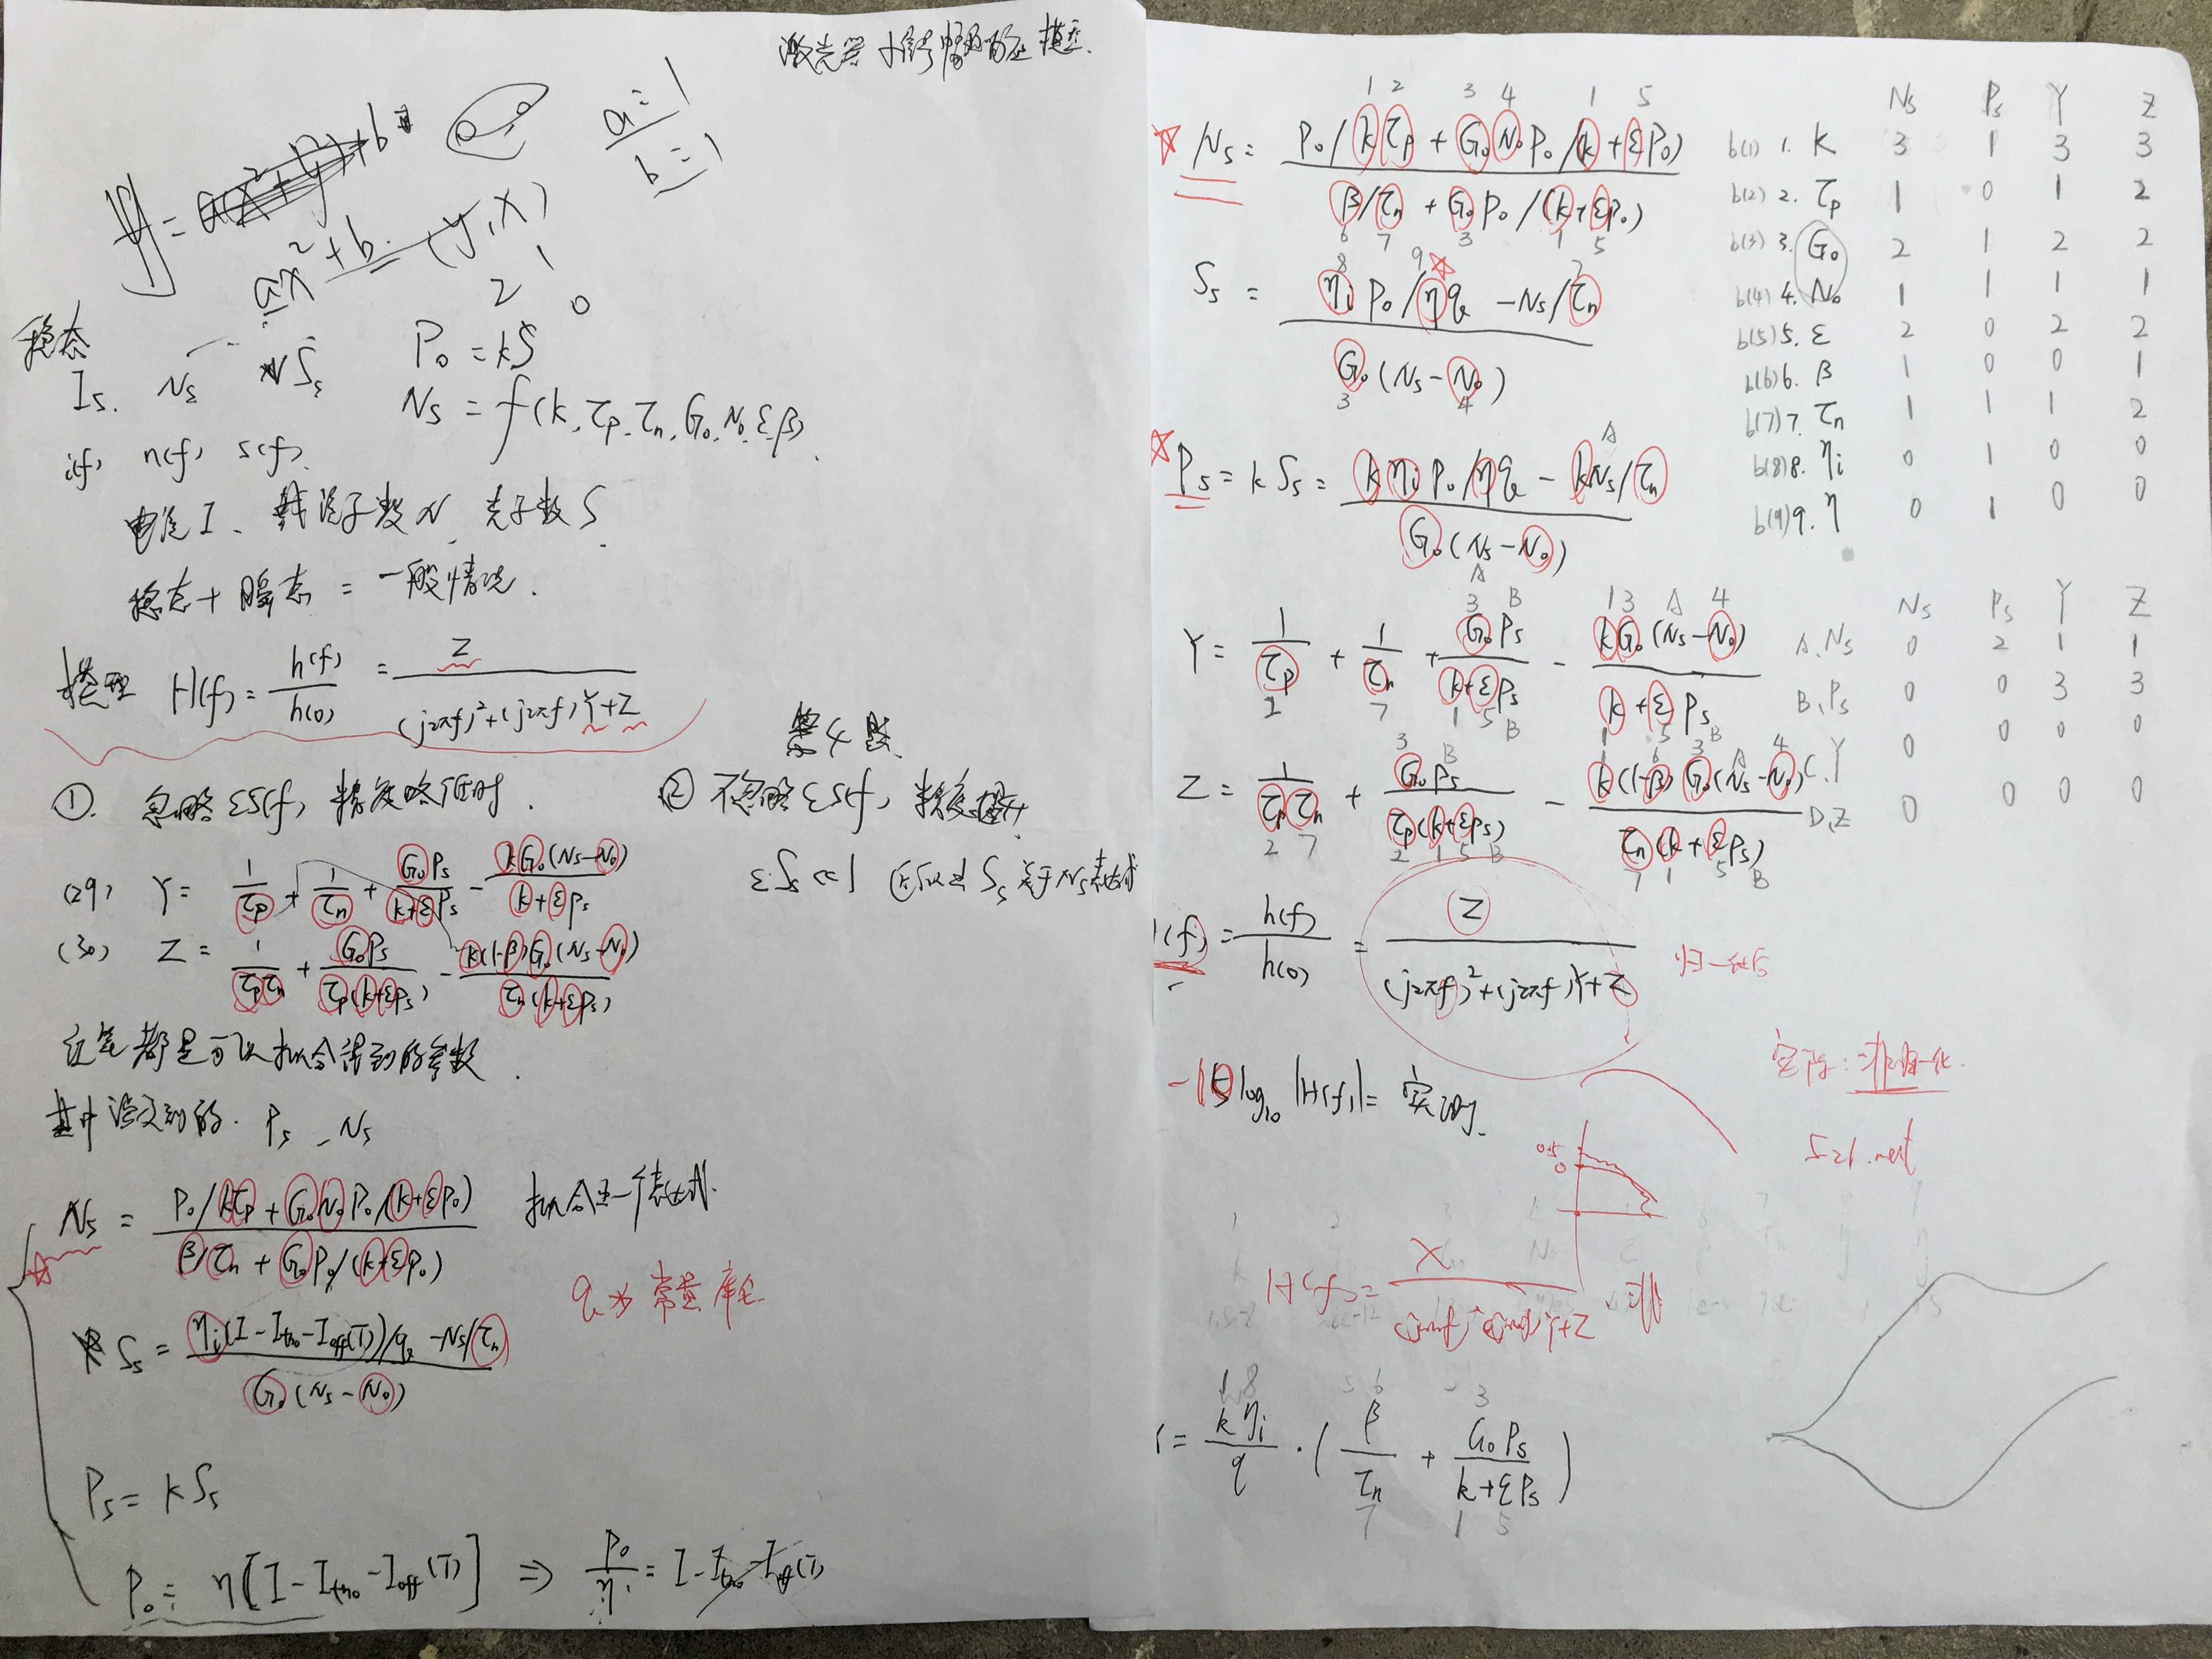 激光器小信号幅频响应模型.
a=1
b=1
ax²+b (y,x)
2 1
0
稳态
Is. Ns Ss P₀=kS
Ns = f(k, τp, τn, G₀, N₀, ε, β).
i(f) n(f) s(f).
电流I、载流子数N、光子数S.
稳态+瞬态 = 一般情况.
模型 H(f) = h(f)/h(0) = Z/((j2πf)²+(j2πf)Y+Z)
第4题
① 忽略εS(f), 精度略低时.
② 不忽略εS(f), 精度提升
εSs<<1
(29) Y = 1/τp + 1/τn + G₀Ps/(k+εPs) - kG₀(Ns-N₀)/(k+εPs)
(30) Z = 1/(τpτn) + G₀Ps/(τp(k+εPs)) - k(1-β)G₀(Ns-N₀)/(τn(k+εPs))
这些都是可以拟合得到的参数.
其中 的. Ps、Ns
Ns = (P₀/kτp + G₀N₀P₀/(k+εP₀))/(β/τn + G₀P₀/(k+εP₀)) 拟合这一个表达式.
q为常量
Ss = (ηi(I-Ith0-Ioff(T))/q - Ns/τn)/(G₀(Ns-N₀))
Ps = kSs
P₀ = η[I-Ith0-Ioff(T)] ⇒ P₀/η = I-Ith0-Ioff(T)
1 2 3 4 1 5
Ns = (P₀/kτp + G₀N₀P₀/(k+εP₀))/(β/τn + G₀P₀/(k+εP₀))
6 7 3 1 5
8 9 7
Ss = (ηiP₀/ηq - Ns/τn)/(G₀(Ns-N₀))
3 4
Ps = kSs = (kηiP₀/ηq - kNs/τn)/(G₀(Ns-N₀))
Ns Ps Y Z
b(1) 1. K 3 1 3 3
b(2) 2. τp 1 0 1 2
b(3) 3. G₀ 2 1 2 2
b(4) 4. N₀ 1 1 1 1
b(5) 5. ε 2 0 2 2
b(6) 6. β 1 0 0 1
b(7) 7. τn 1 1 1 2
b(8) 8. ηi 0 1 0 0
b(9) 9. η 0 1 0 0
3 B 1 3 A 4
Y = 1/τp + 1/τn + G₀Ps/(k+εPs) - kG₀(Ns-N₀)/(k+εPs)
2 7 1 5 B 1 5 B
3 B 1 6 3 A 4
Z = 1/(τpτn) + G₀Ps/(τp(k+εPs)) - k(1-β)G₀(Ns-N₀)/(τn(k+εPs))
2 7 2 1 5 B 7 1 5 B
Ns Ps Y Z
A. Ns 0 2 1 1
B. Ps 0 0 3 3
C. Y 0 0 0 0
D. Z 0 0 0 0
(f) = h(f)/h(0) = Z/((j2πf)²+(j2πf)Y+Z) 归一化后
实际: 非归一化.
log₁₀|H(f)| =
0.5
0
H(f) = X/
1 8 6 3
= kηi/q · (β/τn + G₀Ps/(k+εPs))
7 1 5